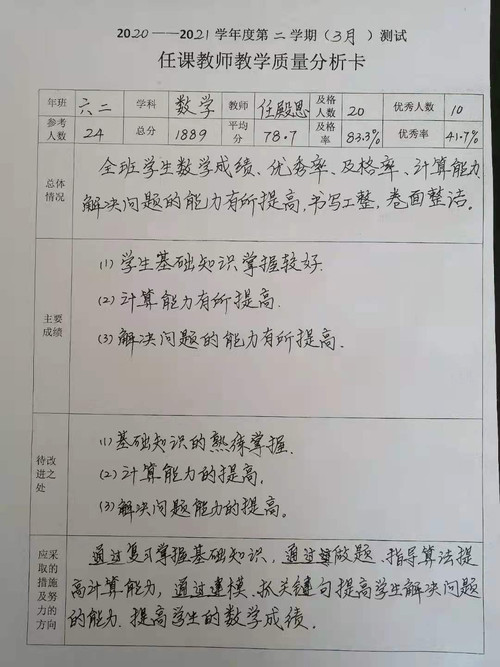 2020——2021学年度第二学期（3月）测试
任课教师教学质量分析卡
年班 六二 学科 数学 教师 任殿恩 及格人数 20 优秀人数 10
参考人数 24 总分 1889 平均分 78.7 及格率 83.3% 优秀率 41.7%
总体情况
全班学生数学成绩、优秀率、及格率、计算能力
解决问题的能力有所提高,书写工整,卷面整洁。
主要成绩
(1)学生基础知识掌握较好.
(2)计算能力有所提高.
(3)解决问题的能力有所提高.
待改进之处
(1)基础知识的熟练掌握.
(2)计算能力的提高.
(3)解决问题能力的提高。
应采取的措施及努力的方向
通过复习掌握基础知识，通过做题.指导算法提
高计算能力，通过建模.抓关键句提高学生解决问题
的能力.提高学生的数学成绩.